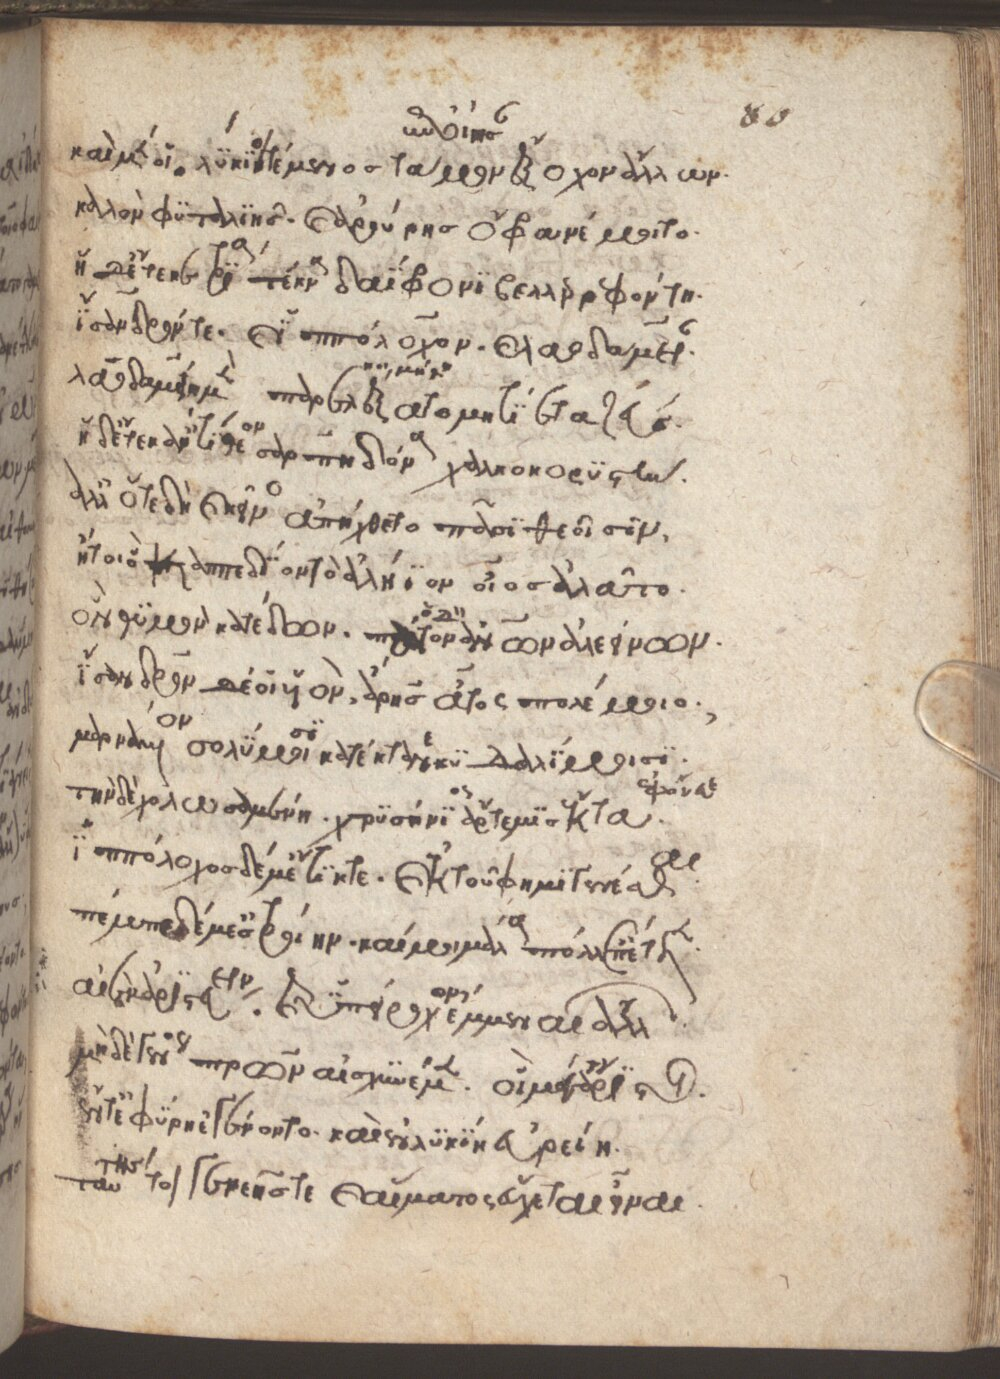 80
καὶ μέν οἱ λύκιοι τέμενος τάμον ἔξοχον ἄλλων.
καλὸν φυταλιῆς. καὶ ἀρούρης ὄφρα νέμοιτο.
ἡ δ' ἔτεκε τρία τέκνα δαΐφρονι βελλεροφόντη.
ἴσανδρόν τε. καὶ ἱππόλοχον. καὶ λαοδάμειαν.
λαοδαμείῃ μὲν παρελέξατο μητίετα ζεύς.
ἡ δ' ἔτεκ' ἀντίθεον σαρπηδόνα χαλκοκορυστήν.
ἀλλ' ὅτε δὴ καὶ κεῖνος ἀπήχθετο πᾶσι θεοῖσιν,
ἤτοι ὁ καππεδίον τὸ ἀλήϊον οἶος ἀλᾶτο.
ὃν θυμὸν κατέδων. πάτον ἀνθρώπων ἀλεείνων.
ἴσανδρον δέ οἱ υἱὸν, ἄρης ἆτος πολέμοιο.
μαρνάμενον σολύμοισι κατέκτανε κυδαλίμοισι.
τὴν δὲ χολωσαμένη. χρυσήνιος ἄρτεμις ἔκτα.
ἱππόλοχος δέ μ' ἔτικτε. καὶ ἐκ τοῦ φημὶ γενέσθαι
πέμπε δέ μ' ἐς τροίην. καί μοι μάλα πόλλ' ἐπέτελλεν.
αἰὲν ἀριστεύειν. καὶ ὑπείροχον ἔμμεναι ἄλλων.
μηδὲ γένος πατέρων αἰσχυνέμεν. οἳ μέγ' ἄριστοι.
ἔν τ' ἐφύρῃ ἐγένοντο. καὶ ἐν λυκίῃ εὐρείῃ.
ταύτης τοι γενεῆς τε καὶ αἵματος εὔχομαι εἶναι.